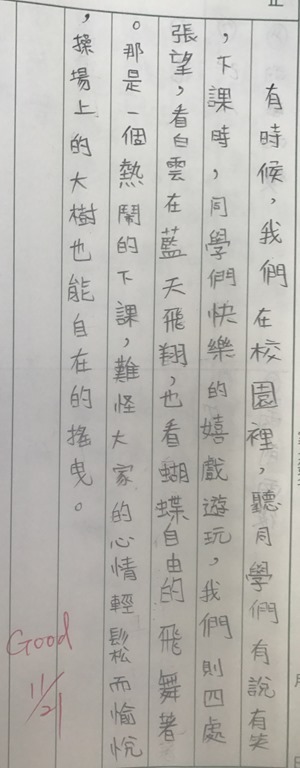 有時候，我們在校園裡，聽同學們有說有笑
，下課時，同學們快樂的嬉戲遊玩，我們則四處
張望，看白雲在藍天飛翔，也看蝴蝶自由的飛舞著
。那是一個熱鬧的下課，難怪大家的心情輕鬆而愉悅
，操場上的大樹也能自在的搖曳。
Good
11/21